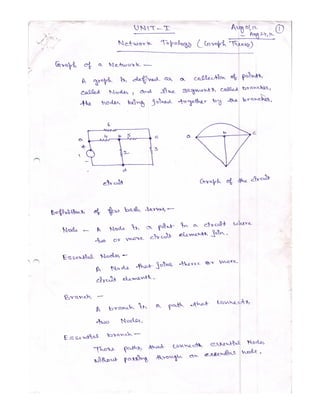 UNIT-I
①
Network Topology (Graph Theory)
Graph of a Network —
A graph is defined as a collection of points
called Nodes, and line segments called branches,
the nodes being joined together by the branches.
6
a 4 b 5 c
1 2 3
d
a b c
circuit
Graph of the circuit
Definitions of few basic terms,—
Node — A Node is a point in a circuit where
two or more circuit elements join.
Essential Node —
A Node that joins three or more
circuit elements.
Branch —
A branch is a path that connects
two Nodes.
Essential branch —
Those paths that connects essential Node
without passing through an essential node.